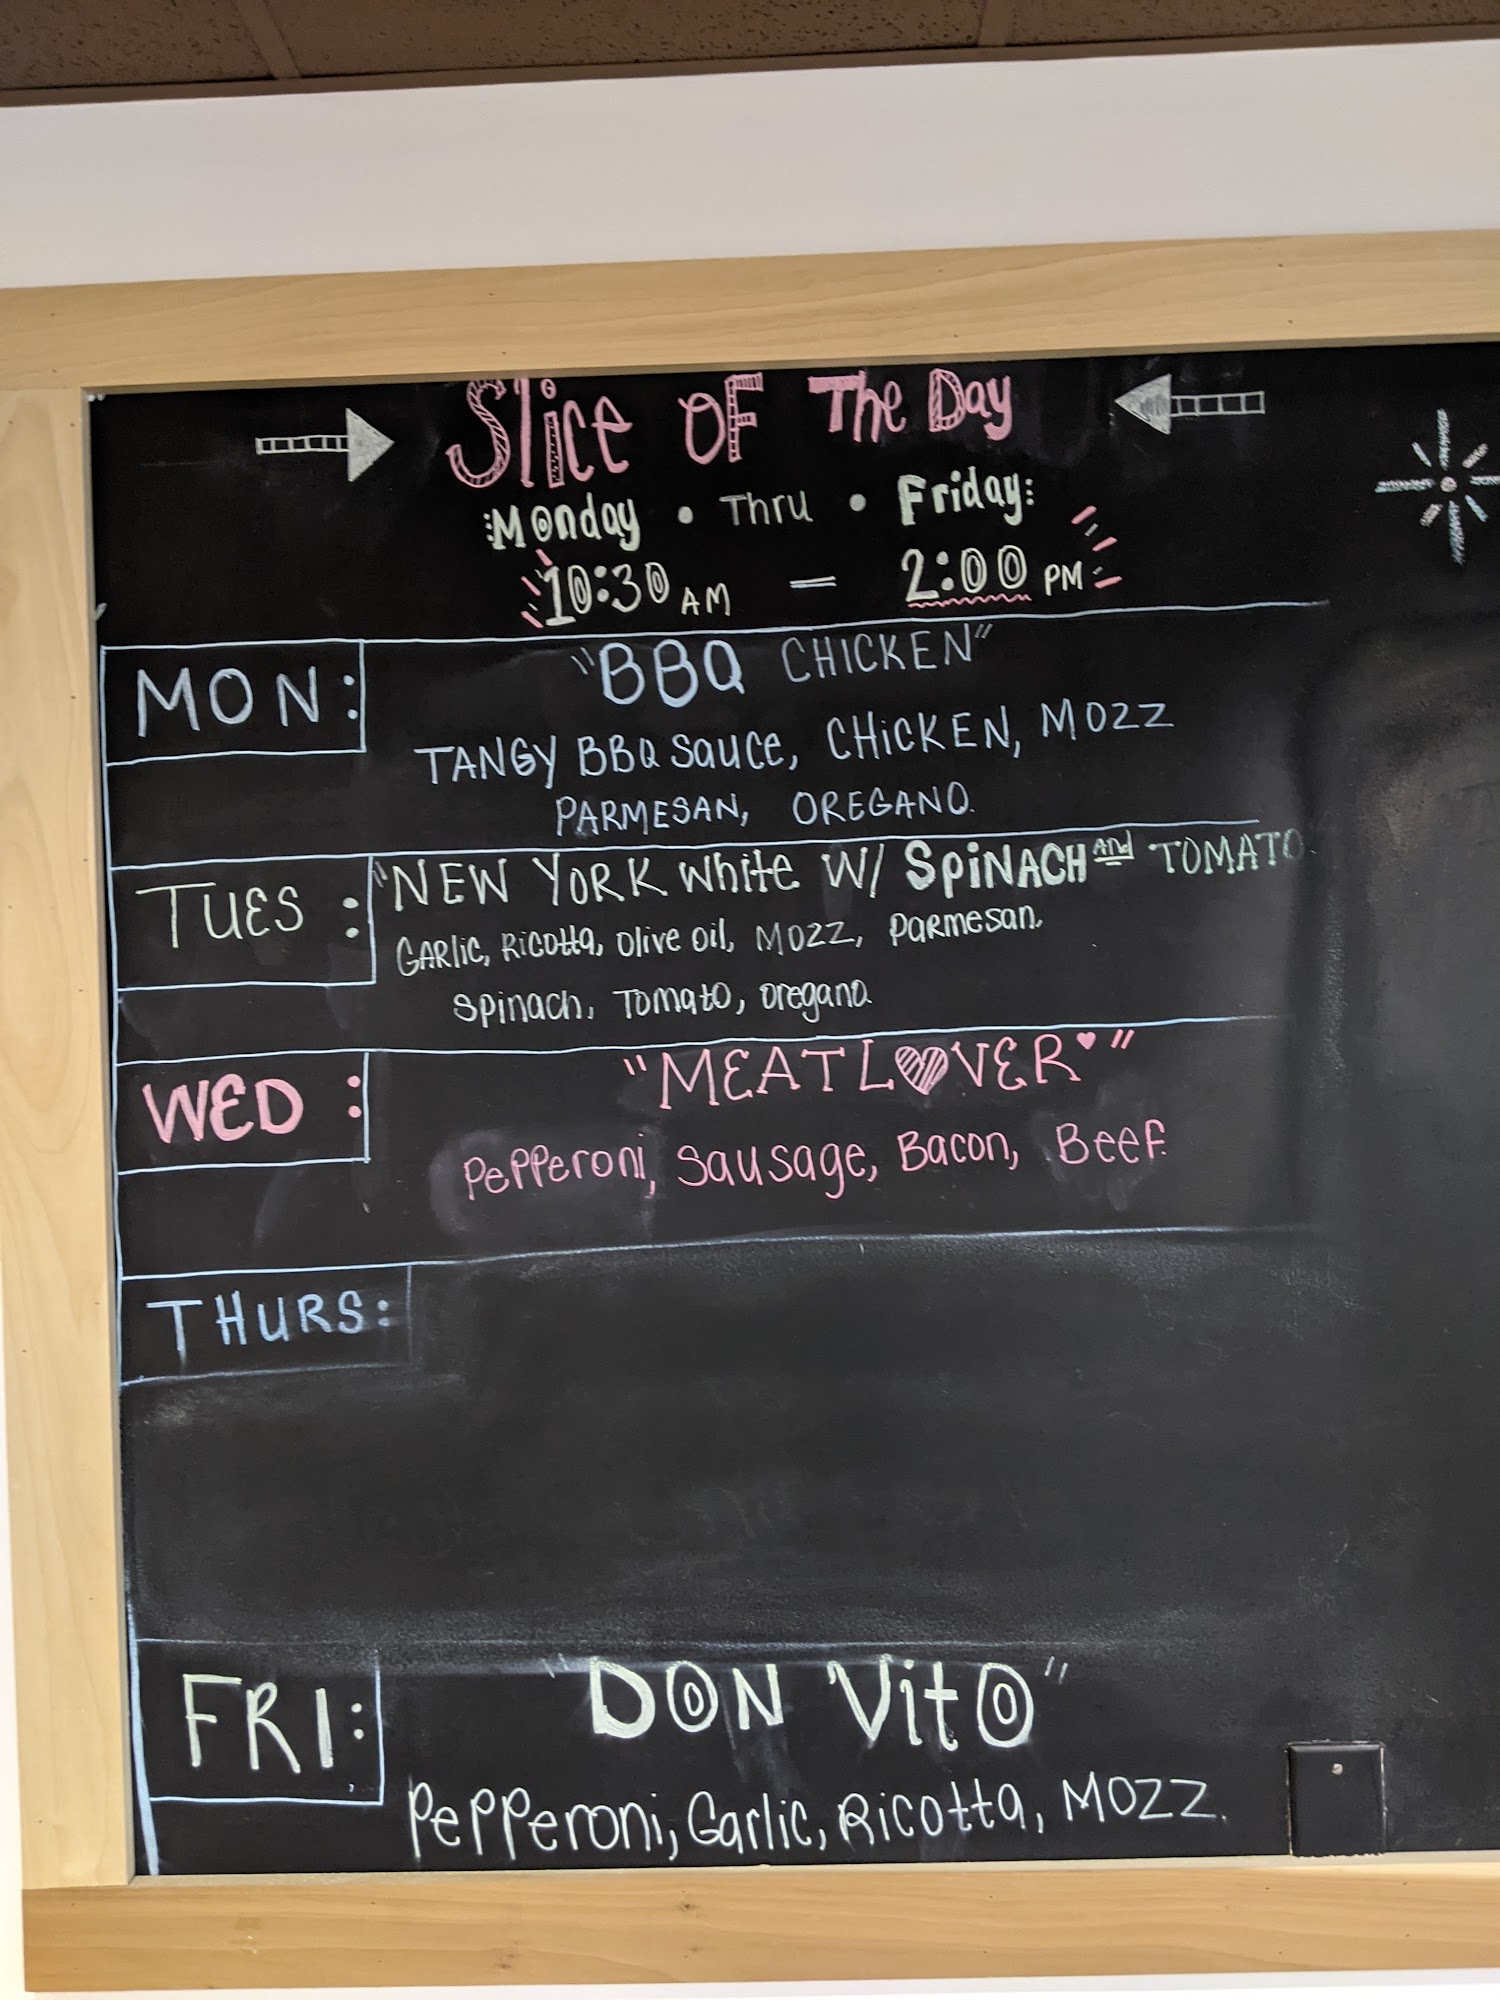 Slice OF The Day
Monday • Thru • Friday:
10:30 AM — 2:00 PM
MON: "BBQ CHICKEN"
TANGY BBQ Sauce, CHICKEN, MOZZ
PARMESAN, OREGANO.
TUES: "NEW YORK White W/ SPINACH AND TOMATO
GARlic, Ricotta, Olive Oil, MOZZ, PaRmesan.
Spinach, Tomato, oregano.
WED: "MEATL♥VER♥"
Pepperoni, Sausage, Bacon, Beef.
THURS:
FRI: "DON VitO"
Pepperoni, Garlic, Ricotta, MOZZ.